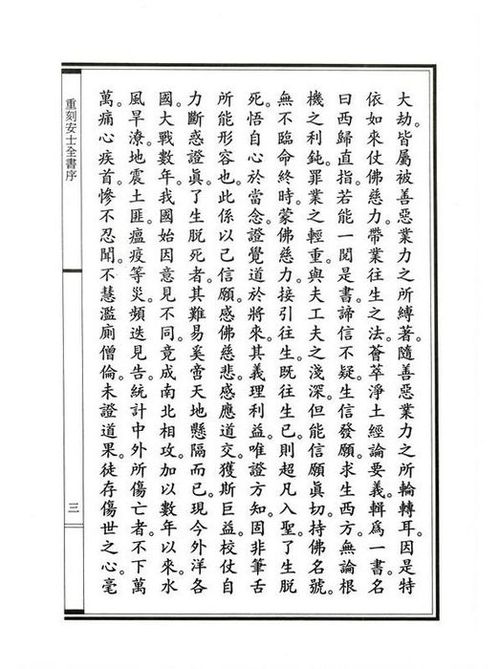 大劫。皆屬被善惡業力之所縛著。隨善惡業力之所輪轉耳。因是特
依如來仗佛慈力。帶業往生之法。薈萃淨土經論要義。輯為一書。名
曰西歸直指。若能一閱是書。諦信不疑。生信發願。求生西方。無論根
機之利鈍。罪業之輕重。與夫工夫之淺深。但能信願真切。持佛名號。
無不臨命終時。蒙佛慈力。接引往生。既往生已。則超凡入聖。了生脫
死。悟自心於當念。證覺道於將來。其義理利益。唯證方知。固非筆舌
所能形容也。此係以己信願。感佛慈悲。感應道交。獲斯巨益。校仗自
力斷惑證真。了生脫死者。其難易奚啻天地懸隔而已。現今外洋各
國。大戰數年。我國始因意見不同。竟成南北相攻。加以數年以來。水
風旱潦。地震土匪。瘟疫等災。頻迭見告。統計中外所傷亡者。不下萬
萬。痛心疾首。慘不忍聞。不慧濫廁僧倫。未證道果。徒存傷世之心。毫
重刻安士全書序
三